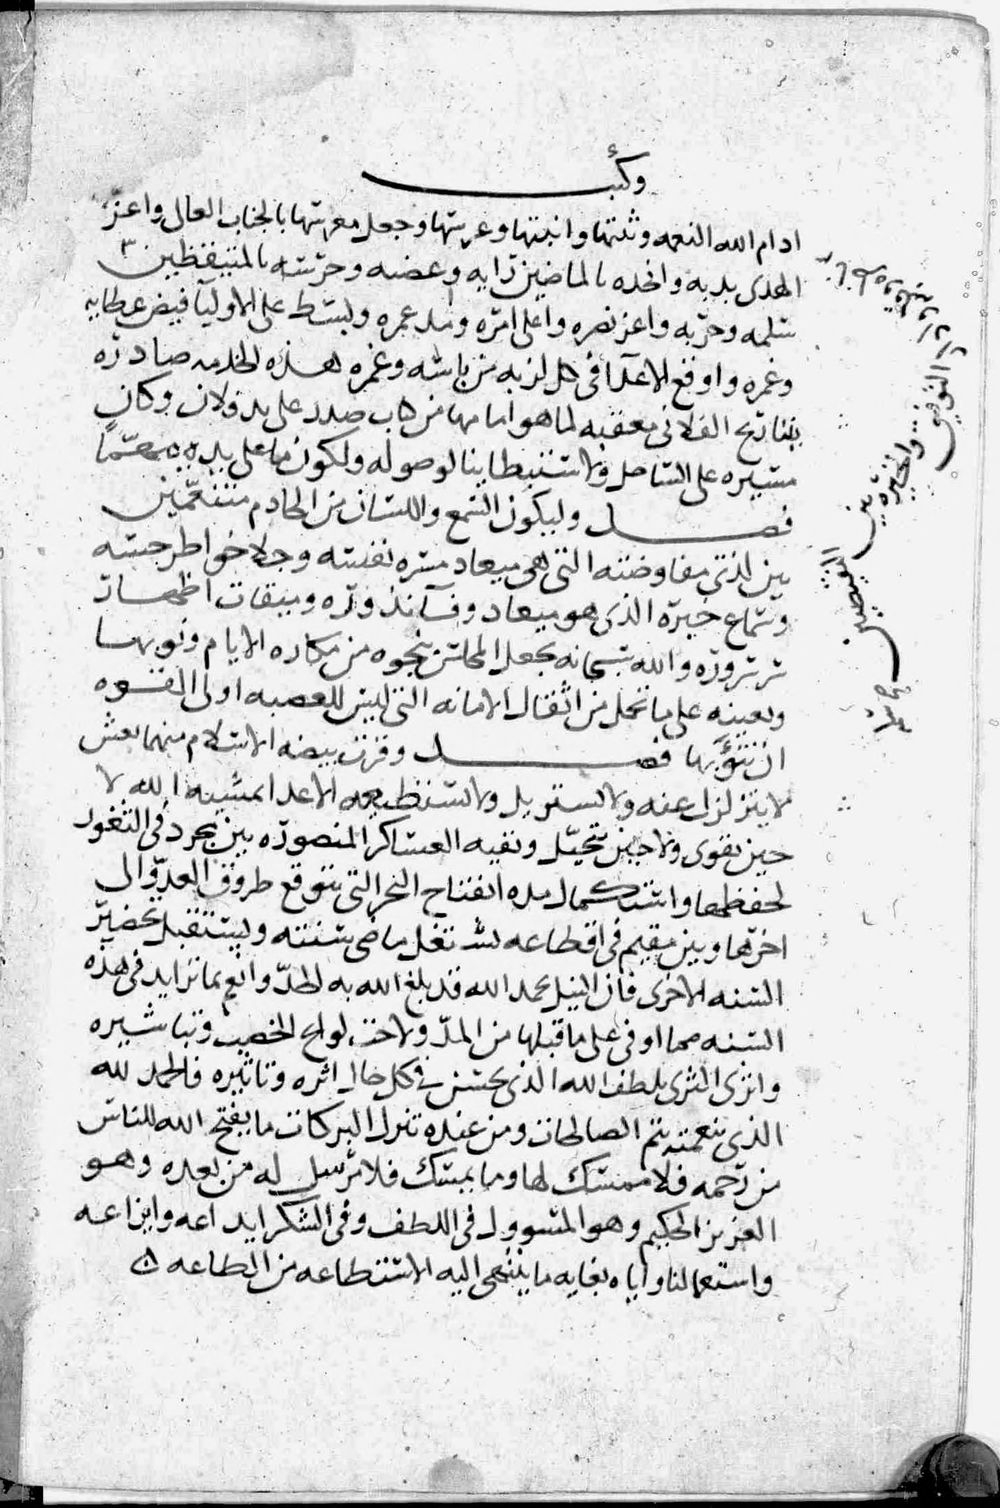 وكتب
ادام الله النعمه وثبتها واثبتها وعربتها وجعل معرتها بالجناب العالي واعزّ
الهدى بديه وانجده بالماضيين رايه وعضبه وحرسه بالمتيقظين
سلمه وحربه واعز نصره واعلى امره ومد عمره وبسط على الاوليآ فيض عطايه
وغمره واوقع الاعدآ في كل لزبه من باسه وغمره هذه الخدمه صادره
بتاريخ الفلاني معقبه لما هو امامها من كتاب صدر على يد فلان وكان
مسيره على الساحل ولاستبطاينا لوصوله ولكون ما على يده مهمّا
فصل وليكون السمع واللسان من الخادم متنعمين
بين لذتي مفاوضته التي هي ميعاد مسره نفسه وجلا خواطر حسه
وسماع خبره الذي هو ميعاد وفآ نذوره وميقات اظهار
سر سروره والله سبحانه يجعل المجلس بنجوه من مكاره الايام ونوبها
ويعينه على ما تحمل من اثقال الامانه التي ليس للعصبه اولى القوه
ان تنوء بها فصل وقرت بيضه الاسلام منهما بعش
لا يتزلزل عنه ولا يستزيل ولا تستطيعه الاعدا بمشيه الله لا
حين تقوى ولا حين تتحيّل وبقيه العساكر المنصوره بين مجرد في الثغور
لحفظها واستكمال مده انفتاح البحر التي يتوقع طروق العدوّ الى
اخرها وبين مقيم في اقطاعه يستغل ماضي سنته ويستقبل تخضير
السنه الاخرى فان النيل بحمد الله قد بلغ الله به الحدّ وانعم بما تزايد في هذه
السنه مما اوفى على ما قبلها من المدّ ولاحت لوايح الخصب وتباشيره
واثرى الثرى بلطف الله الذي يحسن في كل حال اثره وتاثيره فالحمد لله
الذي بنعمته يتم الصالحات ومن عنده تنزل البركات ما يفتح الله للناس
من رحمه فلا ممسك لها وما يمسك فلا مرسل له من بعده وهو
العزيز الحكيم وهو المسوول في اللطف وفي الشكر ايداعه وايزاعه
واستعمالنا واياه بغايه ما ينتهي اليه الاستطاعه من الطاعه